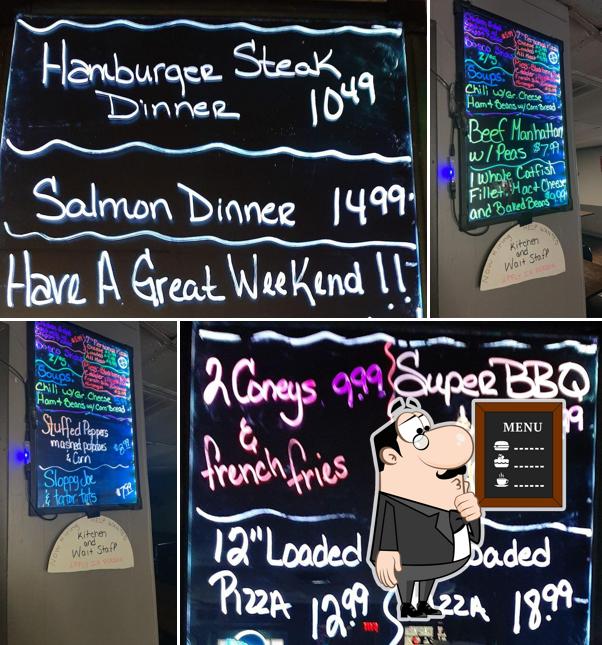 Hamburger Steak
Dinner 10.49
Salmon Dinner 14.99
Have A Great Weekend !!
Soups:
Chili w/Gr. Cheese
Ham & Beans w/Corn Bread
Beef Manhattan
w/ Peas $7.99
1 whole Catfish
Fillet, Mac & Cheese
and Baked Beans
Kitchen
and
Wait Staff
2/5
Soups:
Chili w/Gr. Cheese
Ham & Beans w/Corn Bread
Stuffed Peppers
mashed potatoes
& Corn
Sloppy Joe
& tator tots $7.99
Kitchen
and
Wait Staff
2 Coneys 9.99
&
french fries
Super BBQ
99
12" Loaded
Pizza 12.99
oaded
zza 18.99
MENU